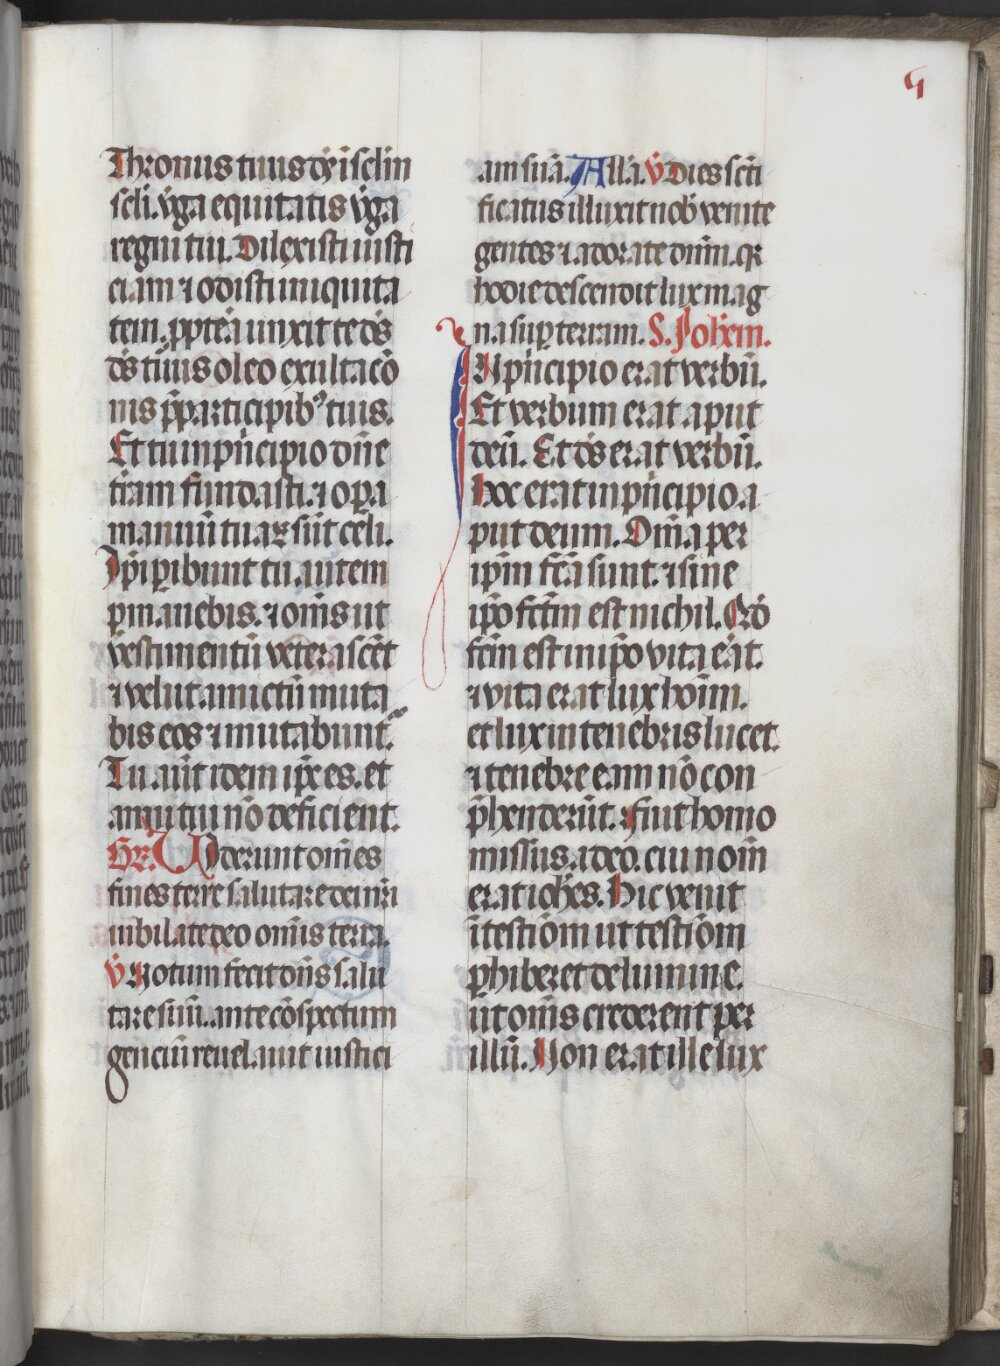 Thronus tuus ds̄ ī sclm̄
scli. v̾ga equitatis v̾ga
regni tui. Dilexisti iusti
ciam ⁊ odisti iniquita
tem. ꝓpterea unxit te ds̄
ds̄ tuus oleo exultacō
nis p̄ participibꝰ tuis.
Et tu in pͥncipio dn̄e
t̄ram fundasti. ⁊ oꝑa
manuū tuaꝝ sūt celi.
Ip̄i ꝑibunt tu autem
ꝑmanebis. ⁊ om̄s ut
vestimentū veterascēt
⁊ velut amictū muta
bis eos ⁊ mutabunt᷑.
Tu aūt idem ip̄e es. et
anni tui nō deficient.
GR. Viderunt om̄es
fines terre salutare dei nr̄i
iubilate deo om̄is terra.
V̾ Notum fecit dn̄s salu
tare suū. ante cōspectum
genciū reuelauit iustici
am suā. All̄a. V̾ Dies sct̄i
ficatus illuxit nob̄ venite
gentes ⁊ adorate dn̄m. qꝛ
hodie descendit lux mag
na suꝑ terram. S. Joh̄em.
IN pͥncipio erat verbū.
Et verbum erat aput
deū. Et ds̄ erat verbū.
Hoc erat in pͥncipio a
put deum. Om̄a per
ip̄m fc̄a sunt. ⁊ sine
ip̄o fc̄m est nichil. Qḋ
fc̄m est in ip̄o vita erat.
⁊ vita erat lux hoīm.
et lux in tenebris lucet.
⁊ tenebre eam nō con
p̄henderūt. Fuit homo
missus a deo. cui nom̄
erat ioh̄es. Hic venit
ī testiōm ut testiōm
ꝑhiberet de lumine.
ut om̄s crederent per
illū. Non erat ille lux